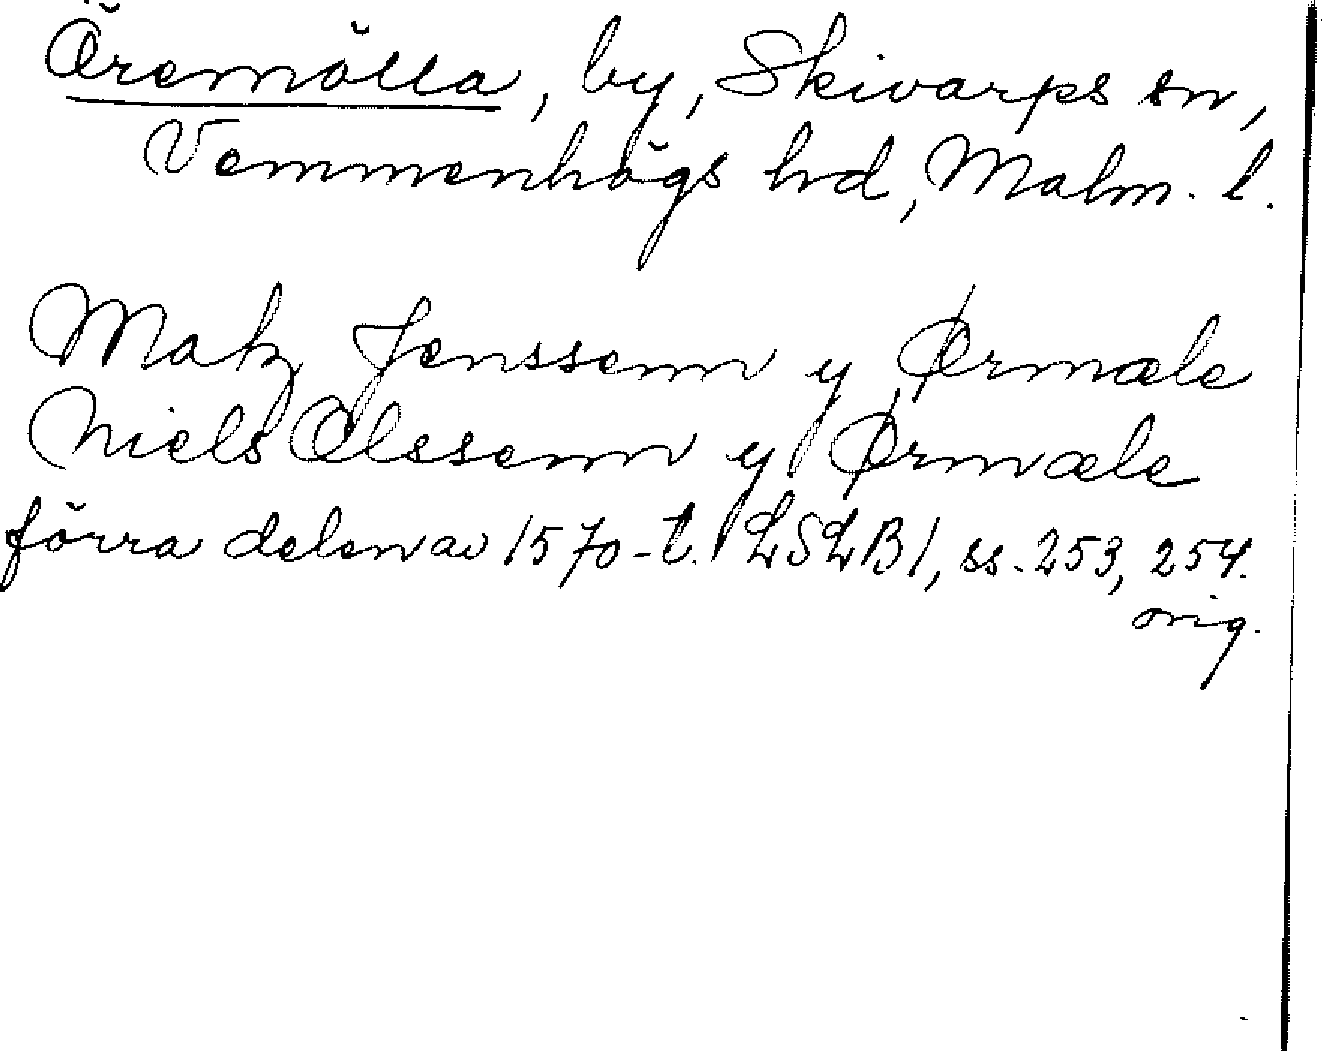 Öremölla, by, Skivarps sn,
Vemmenhögs hd, Malm. l.
Matz Jenssenn y Ørmæle
Niels Olssenn y Ørmæle
förra delen av 1570-t. LSLB1, ss. 253, 254.
orig.